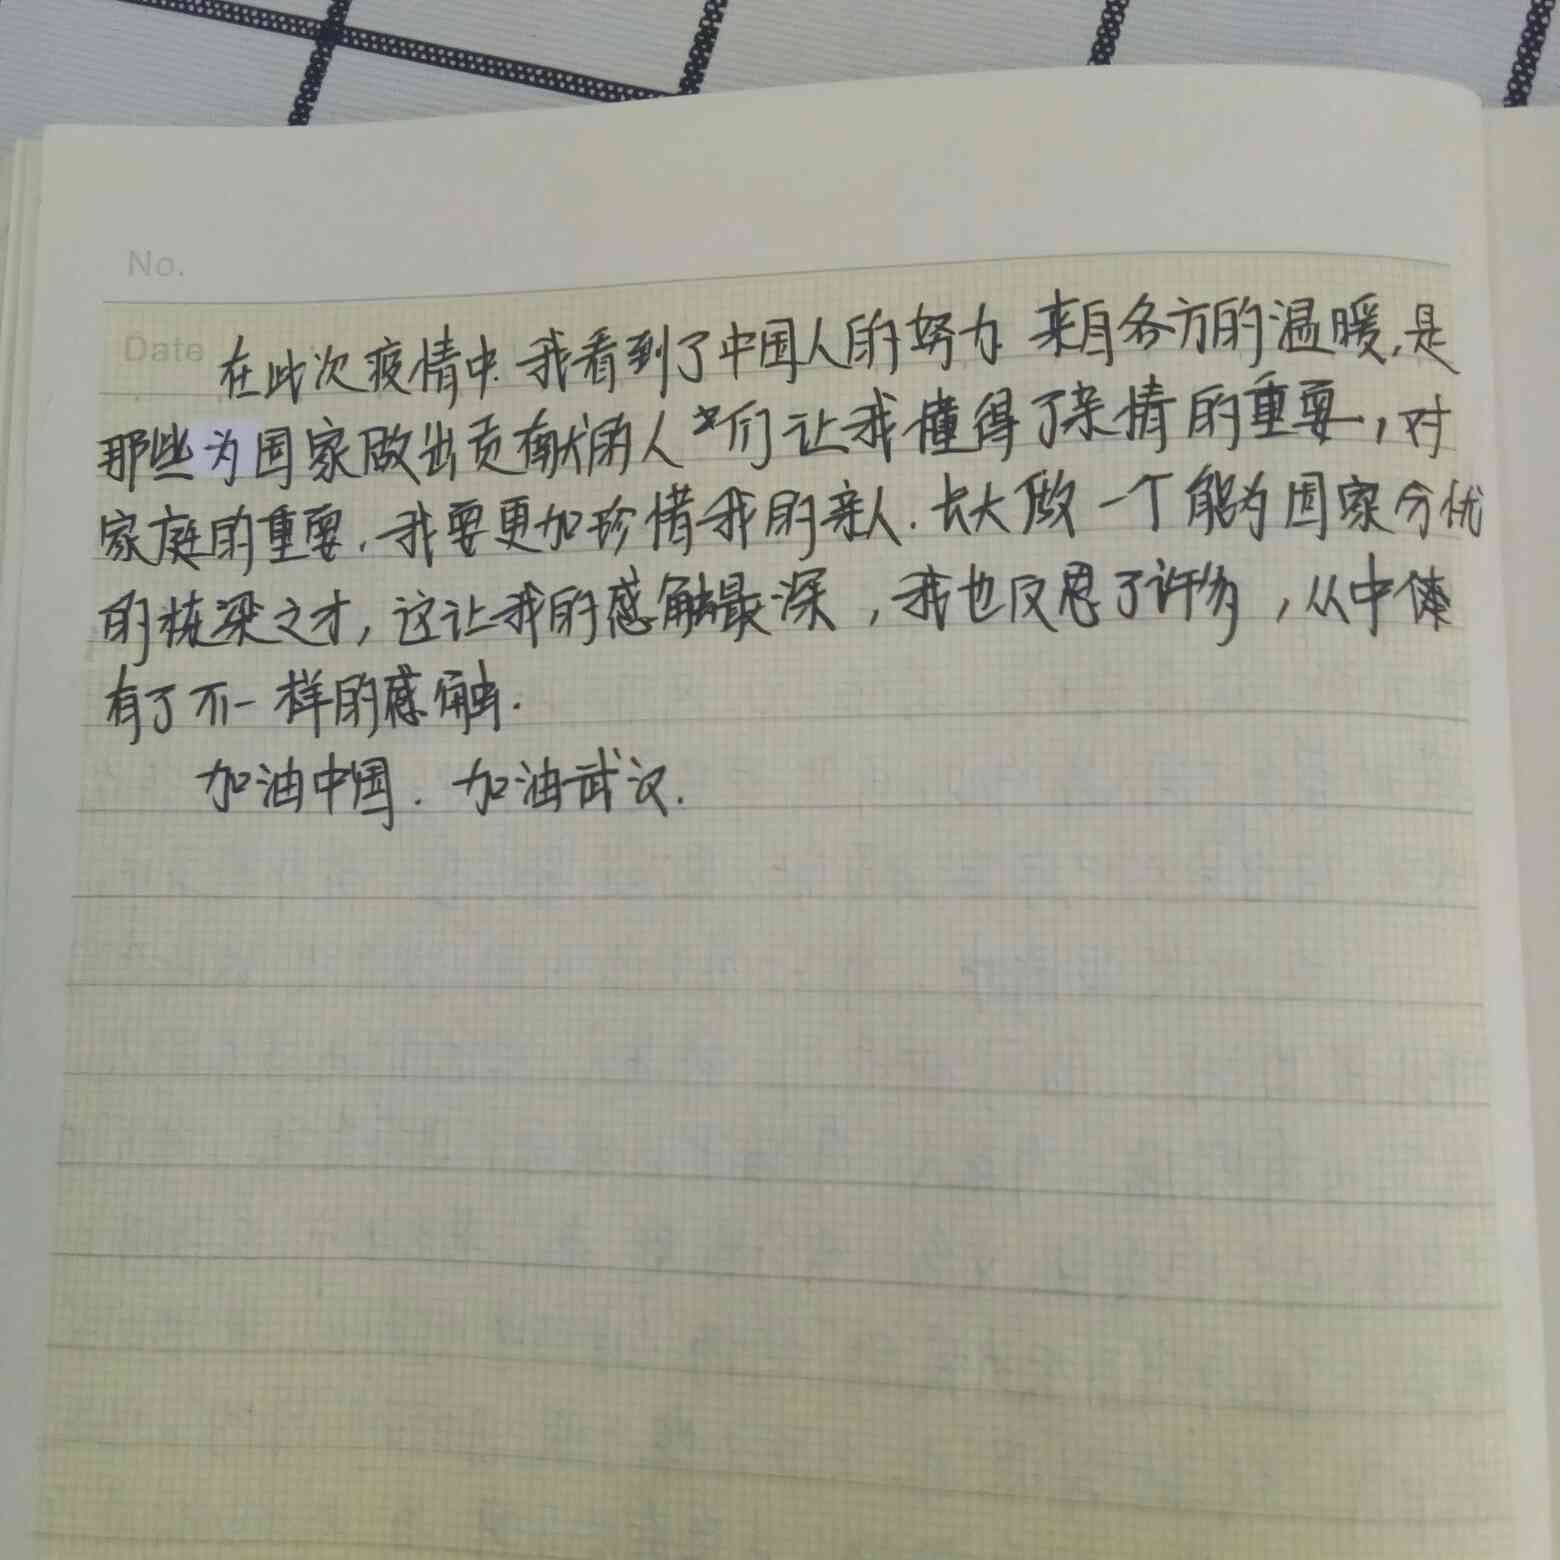 No.
Date
在此次疫情中.我看到了中国人的努力 来自各方的温暖,是
那些为国家做出贡献的人们让我懂得了亲情的重要,对
家庭的重要.我要更加珍惜我的亲人.长大做一个能为国家分忧
的栋梁之才,这让我的感触最深,我也反思了许多,从中体
有了不一样的感触.
加油中国.加油武汉.